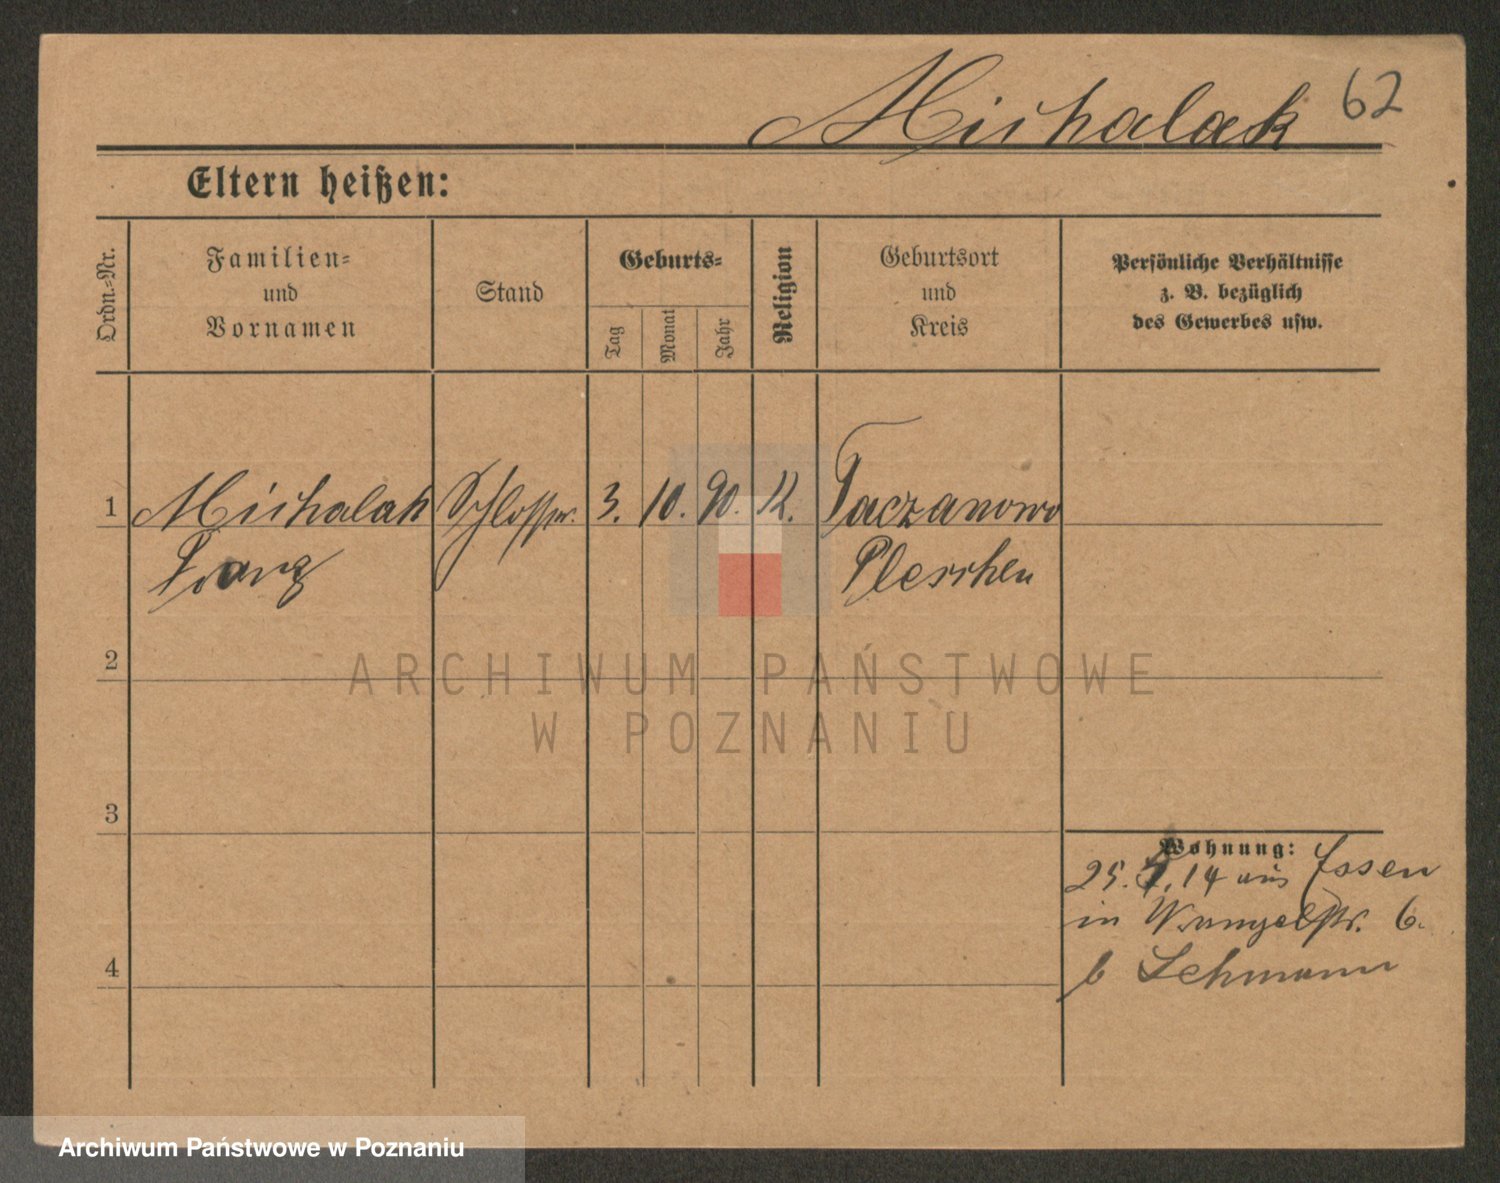 Michalak 62
Eltern heißen:
Ordn.-Nr.
Familien-
und
Vornamen
Stand
Geburts-
Tag
Monat
Jahr
Religion
Geburtsort
und
Kreis
Persönliche Verhältnisse
z. B. bezüglich
des Gewerbes usw.
1 Michalak Schlosser. 3. 10. 90. K. Taczanowo
Franz Pleschen
2
ARCHIWUM PAŃSTWOWE
W POZNANIU
3
Wohnung:
25. 14 aus Essen
in Wrangelstr. 6.
4
b Lehmann
Archiwum Państwowe w Poznaniu